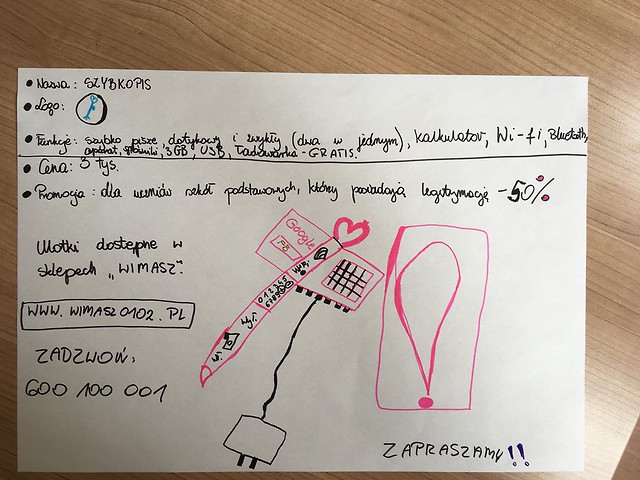 • Nazwa: SZYBKOPIS
• Logo:
• Funkcje: szybko pisze, dotykowy i zwykły (dwa w jednym), kalkulator, Wi-fi, Bluetooth,
aparat, głośniki, 3GB, USB, Ładowarka - GRATIS.
• Cena: 3 tys.
• Promocja: dla uczniów szkół podstawowych, którzy posiadają legitymację -50%
Ulotki dostępne w
sklepach „WIMASZ".
WWW. WIMASZ0102. PL
ZADZWOŃ:
600 100 001
Google
ZAPRASZAMY!!